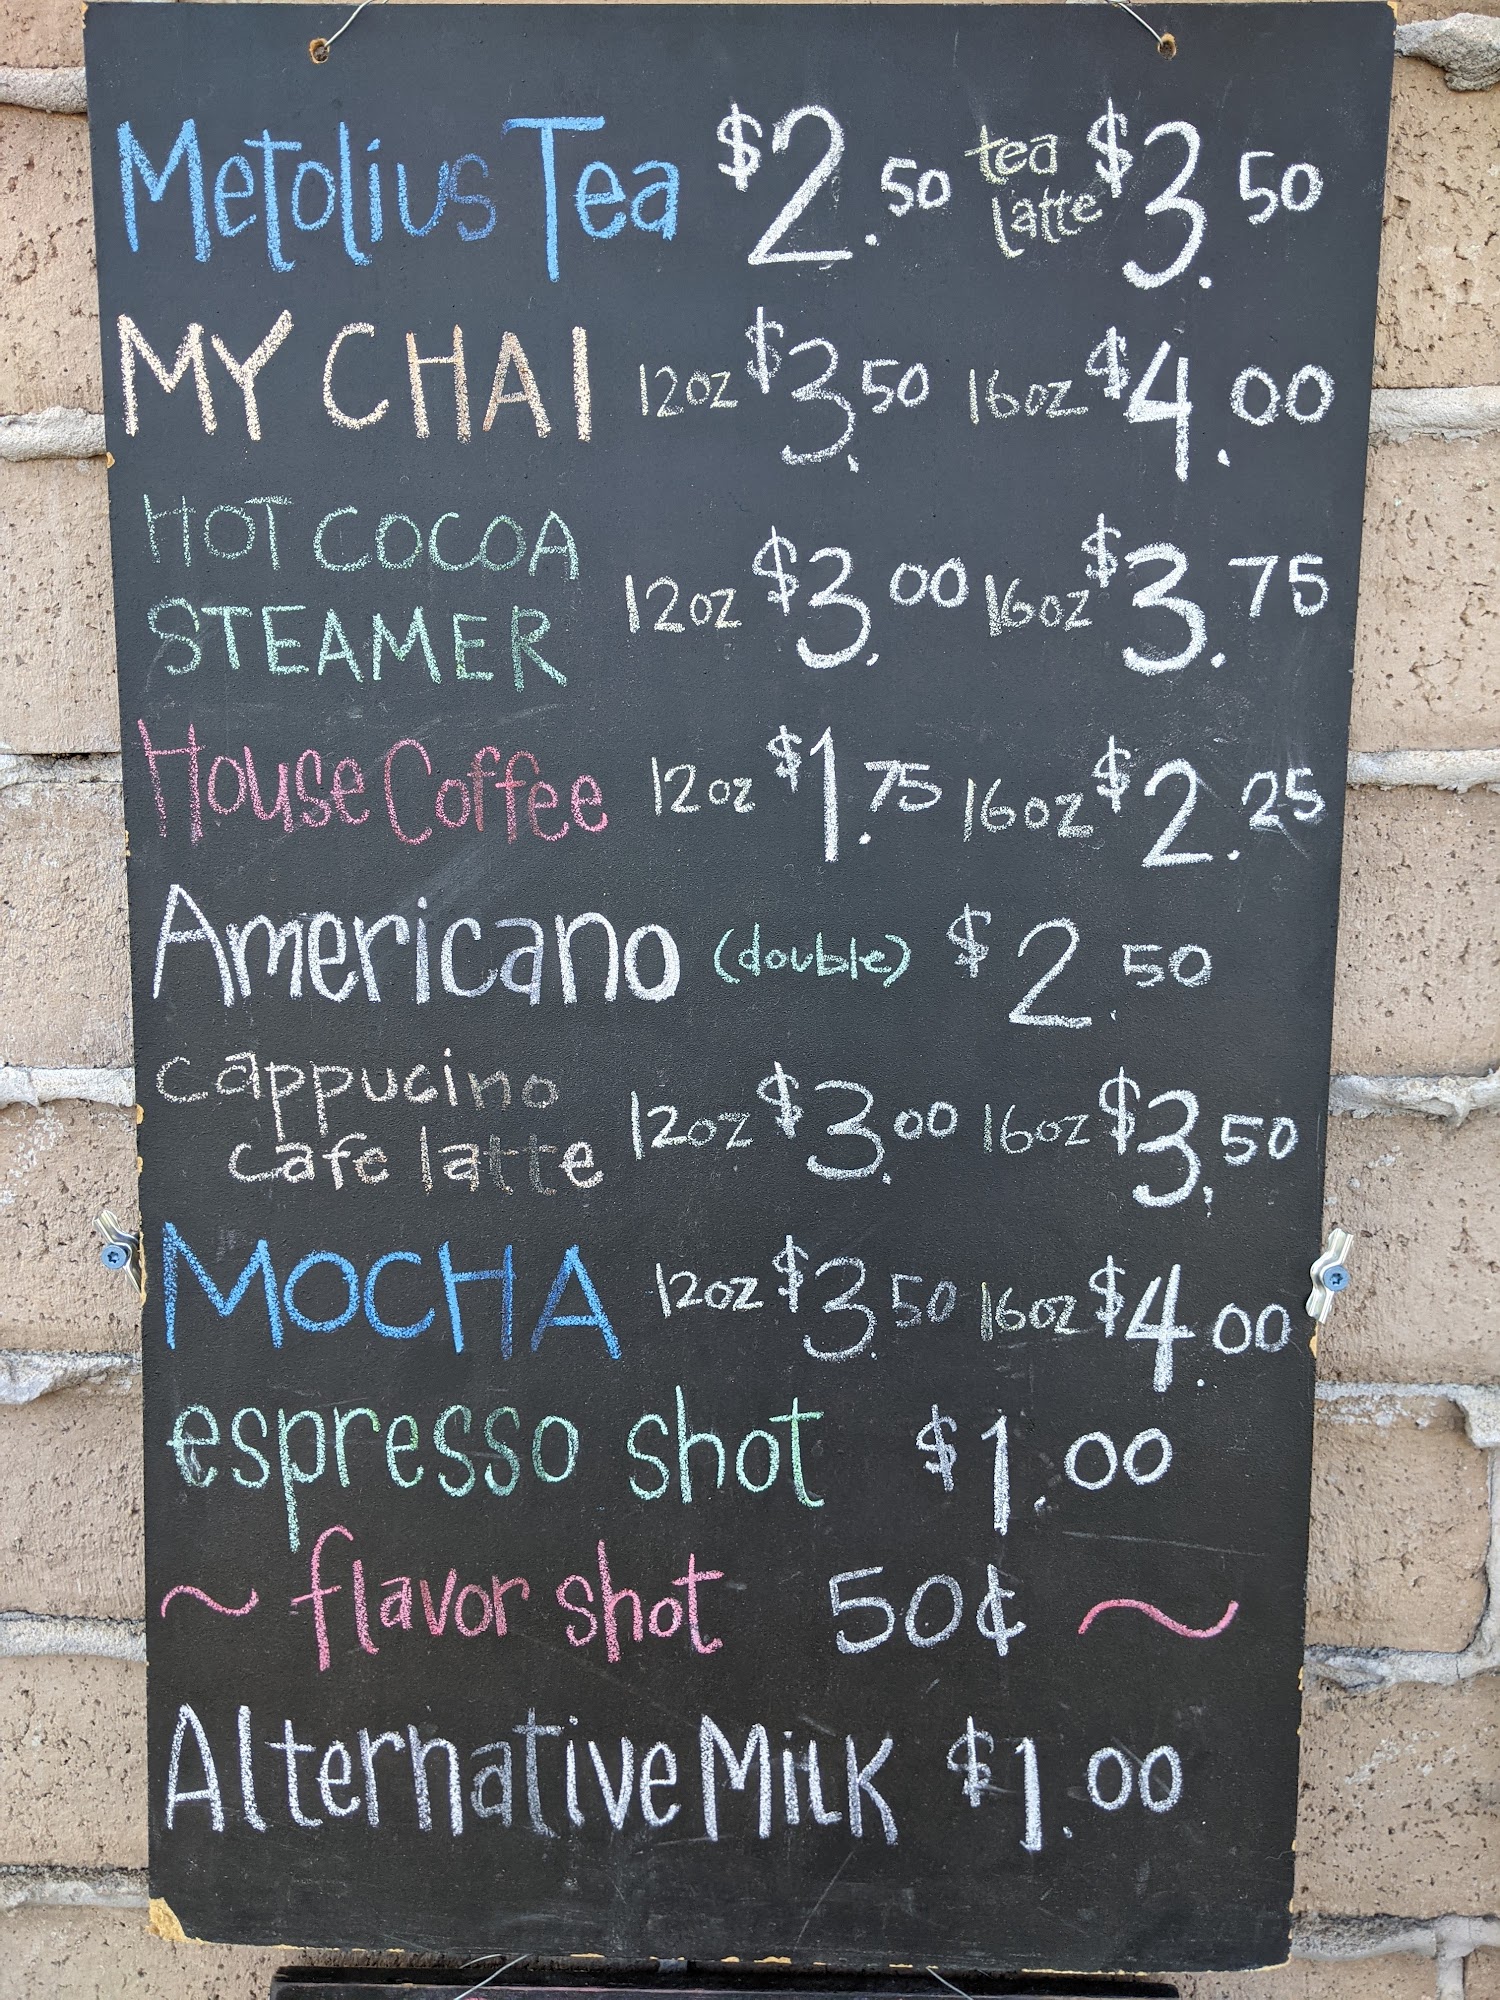 Metolius Tea $2.50 tea latte $3.50
MY CHAI 12oz $3.50 16oz $4.00
HOT COCOA
STEAMER 12oz $3.00 16oz $3.75
House Coffee 12oz $1.75 16oz $2.25
Americano (double) $2.50
cappucino
cafe latte 12oz $3.00 16oz $3.50
MOCHA 12oz $3.50 16oz $4.00
espresso shot $1.00
~ flavor shot 50¢ ~
Alternative Milk $1.00